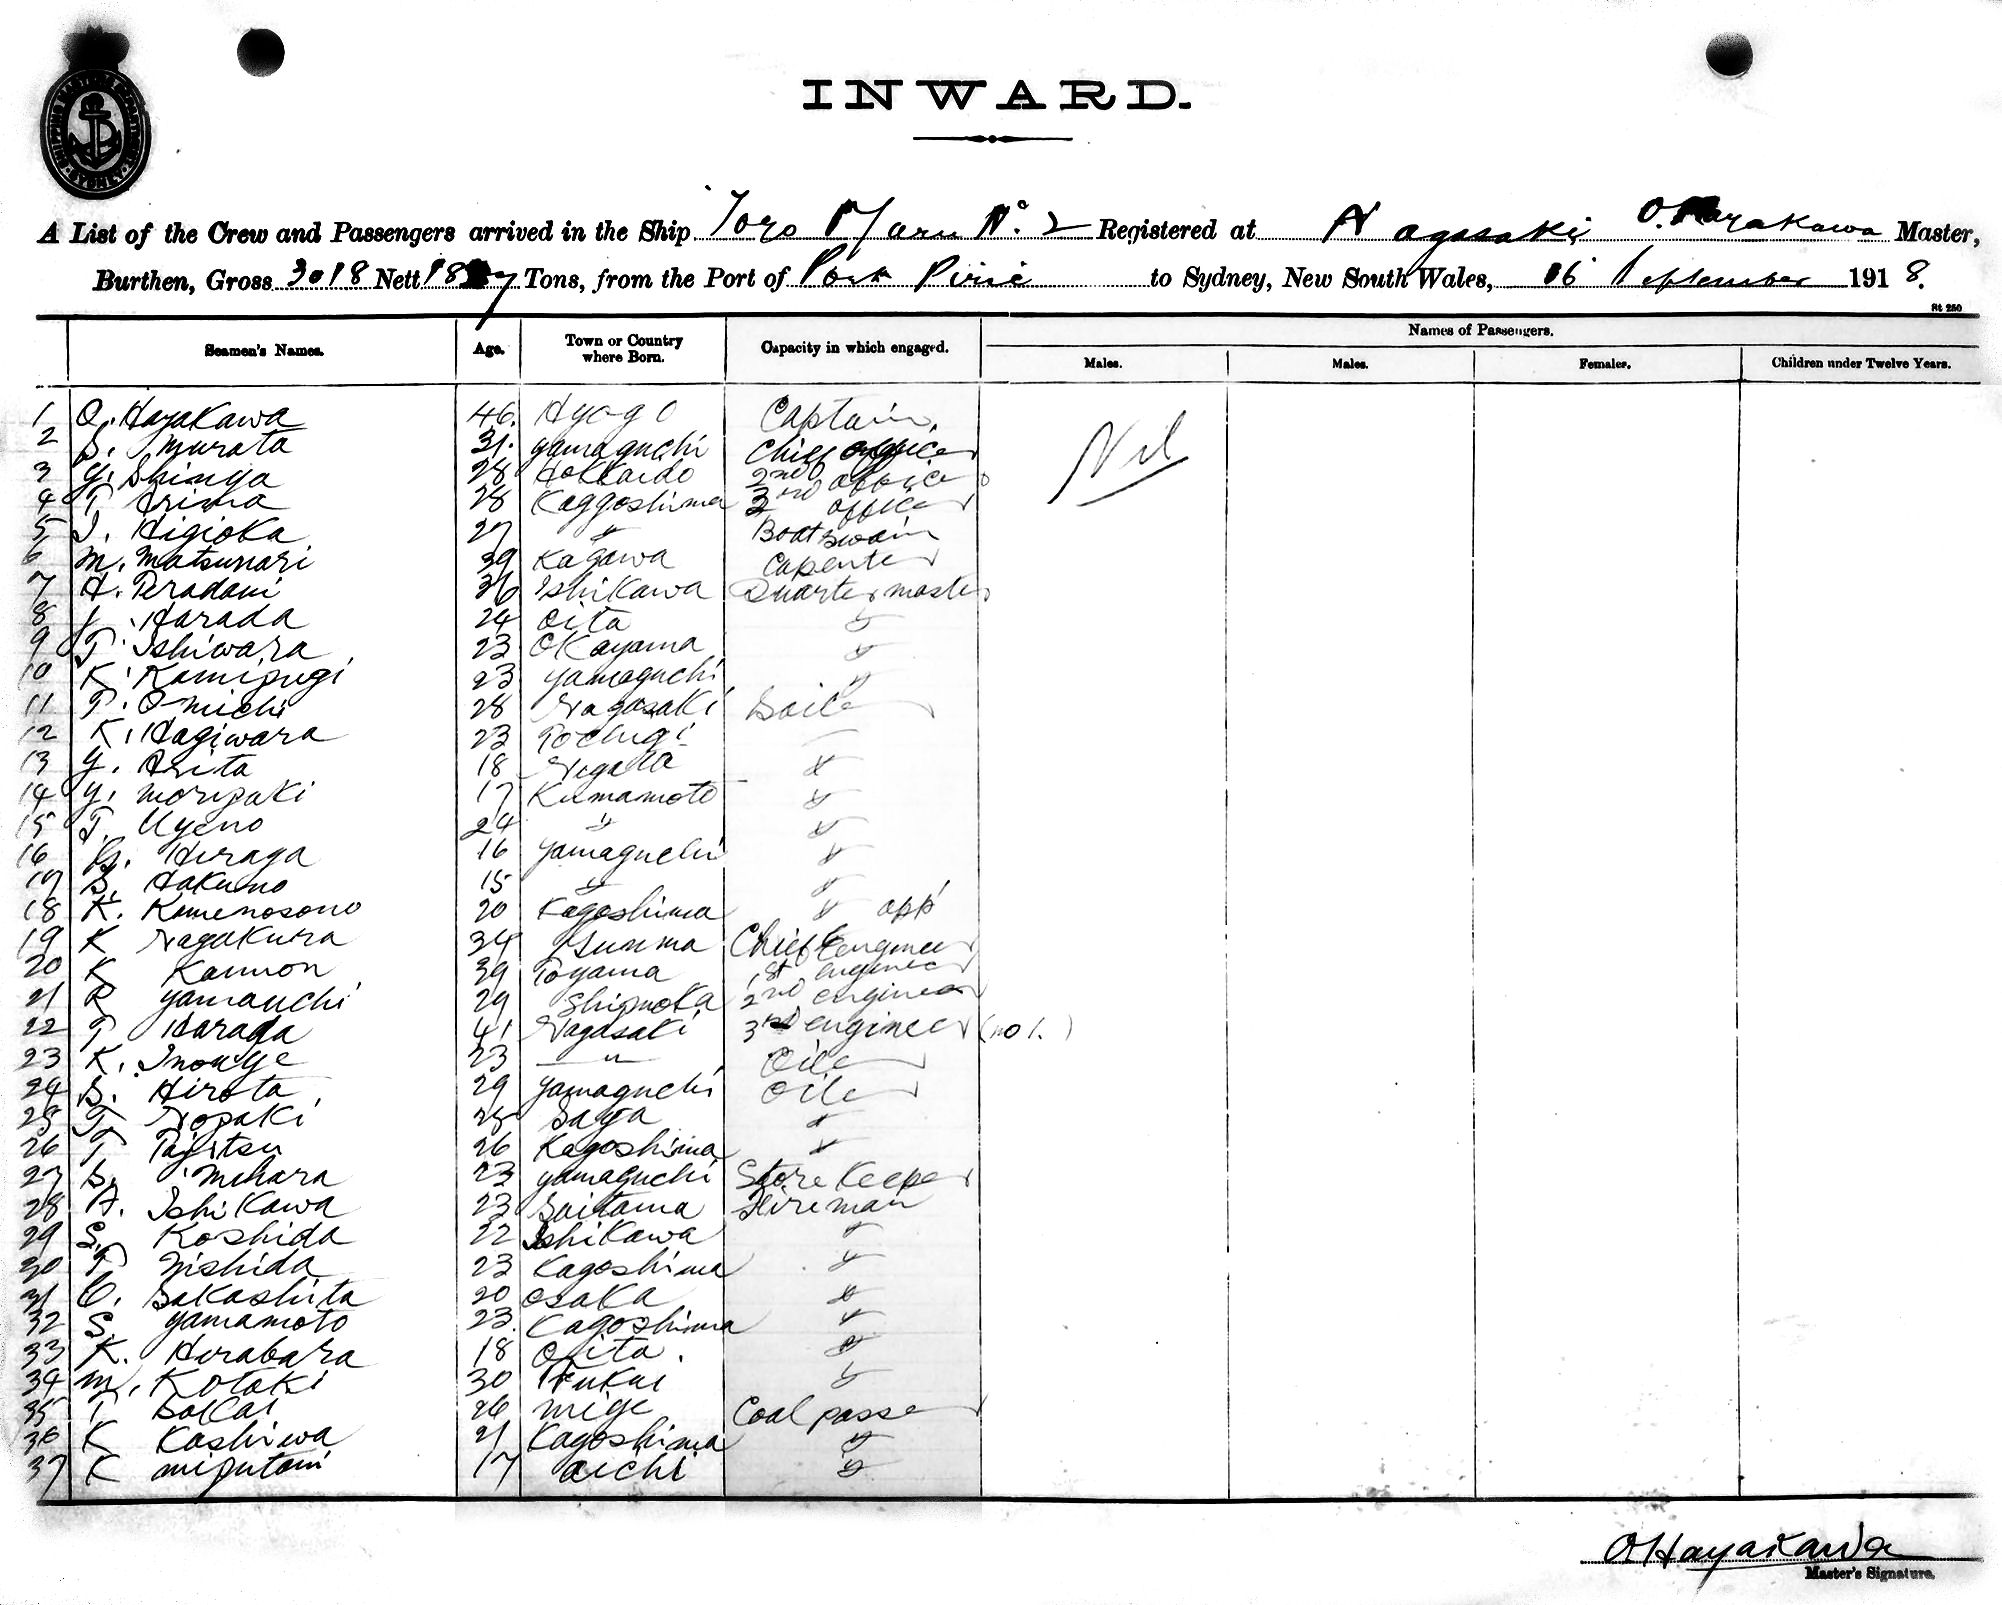 SHIPPING MASTER'S DEPARTMENT SYDNEY
INWARD.
A List of the Crew and Passengers arrived in the Ship Toro Maru No. 2 Registered at Nagasaki O. Hayakawa Master,
Burthen, Gross 3018 Nett Tons, from the Port of Port Pirie to Sydney, New South Wales, 16 September 1918.
St 250
Seamen's Names. Age. Town or Country where Born. Capacity in which engaged. Names of Passengers.
Males. Males. Females. Children under Twelve Years.
1 O. Hayakawa 46. Hyogo Captain. Nil
2 S. Murata 31. Yamaguchi Chief officer
3 Y. Shinya 28 Hokkaido 2nd officer
4 T. Arima 28 Kaggoshima 3rd officer
5 I. Higioka 27 " Boatswain
6 M. Matsunari 39 Kagawa Capenter
7 H. Teradani 36 Ishikawa Quartermaster
8 Harada 24 Oita "
9 T. Ishiwara 23 Okayama "
10 K. Kamizugi 23 Yamaguchi "
11 T. Omichi 28 Nagasaki Sailer
12 K. Hagiwara 23 Tochigi
13 Y. Arita 18 Niigata "
14 Y. Morizaki 17 Kumamoto "
15 T. Uyeno 24 " "
16 G. Hiraga 16 Yamaguchi "
17 S. Hakuno 15 " "
18 K. Kamenosono 20 Kagoshima " app
19 K Nagakura 34 Gunma Chief Engineer
20 K Kannon 39 Toyama 1st engineer
21 R Yamauchi 29 Shizuoka 2nd engineer
22 T Harada 41 Nagasaki 3rd engineer (no 1.)
23 K. Inouye 23 " Oiler
24 S. Hirota 29 Yamaguchi Oiler
25 T. Nozaki 25 Saga "
26 T Tajitsu 26 Kagoshima "
27 S. Mihara 23 Yamaguchi Store Keeper
28 A. Ishikawa 23 Saitama Fireman
29 S. Koshida 22 Ishikawa "
30 T Nishida 23 Kagoshima "
31 C. Sakashita 20 Osaka "
32 S. Yamamoto 23. Kagoshima "
33 K. Hirabara 18 Oita. "
34 M. Kotaki 30 Fukui "
35 T Sakai 26 Mige Coal passer
36 K Kashiwa 21 Kagoshima "
37 K Mizutani 17 Aichi "
O Hayakawa
Master's Signature.